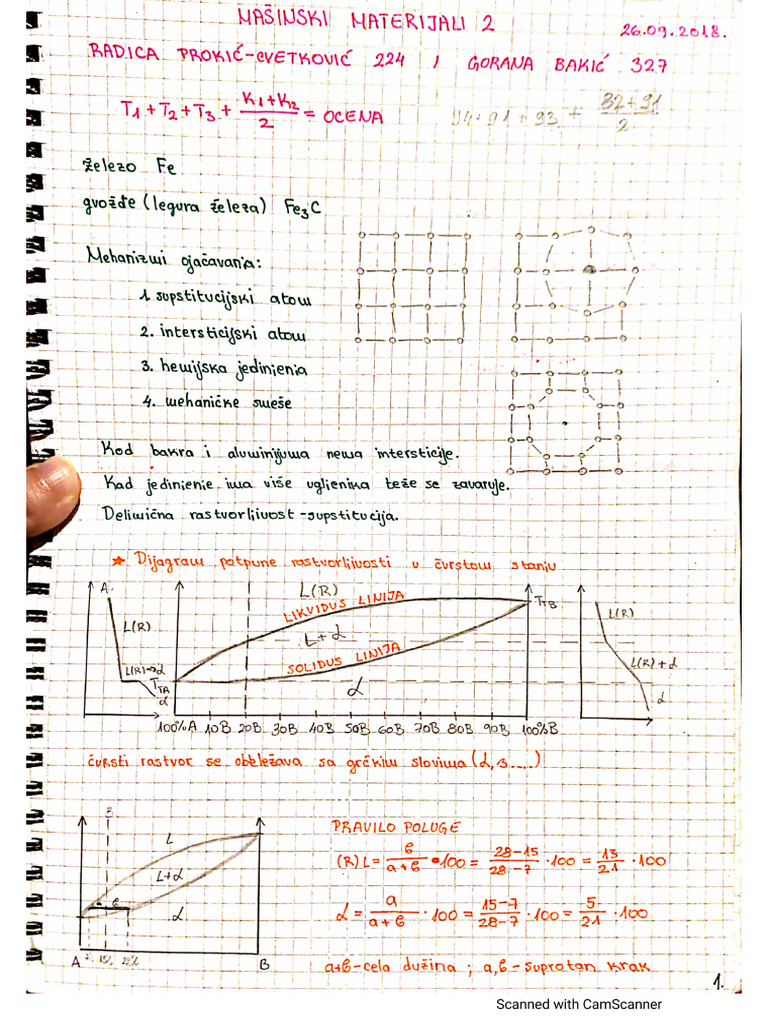 MAŠINSKI MATERIJALI 2
26.09.2018.
RADICA PROKIĆ-CVETKOVIĆ 224 I GORANA BAKIĆ 327
T1+T2+T3+ K1+K2/2 = OCENA
94+91+93 + 92+91/2
železo Fe
gvožđe (legura železa) Fe3C
Mehanizmi ojačavanja:
1. supstitucijski atom
2. intersticijski atom
3. hemijska jedinjenja
4. mehaničke smeše
Kod bakra i aluminijuma nema intersticije.
Kad jedinjenje ima više ugljenika teže se zavaruje.
Delimična rastvorljivost - supstitucija.
* Dijagram potpune rastvorljivosti u čvrstom stanju
A
L(R)
L(R)→α
TTA
α
L(R)
LIKVIDUS LINIJA
L+α
SOLIDUS LINIJA
α
TTB
100%A 10B 20B 30B 40B 50B 60B 70B 80B 90B 100%B
L(R)
L(R)+α
α
čvrsti rastvor se obeležava sa grčkim slovima (α, β.....)
L
L+α
α
a в
A
15%
B
PRAVILO POLUGE
(R) L = в/a+в · 100 = 28-15/28-7 · 100 = 13/21 · 100
α = a/a+в · 100 = 15-7/28-7 · 100 = 5/21 · 100
a+в - cela dužina ; a,в - suprotan krak
1.
Scanned with CamScanner